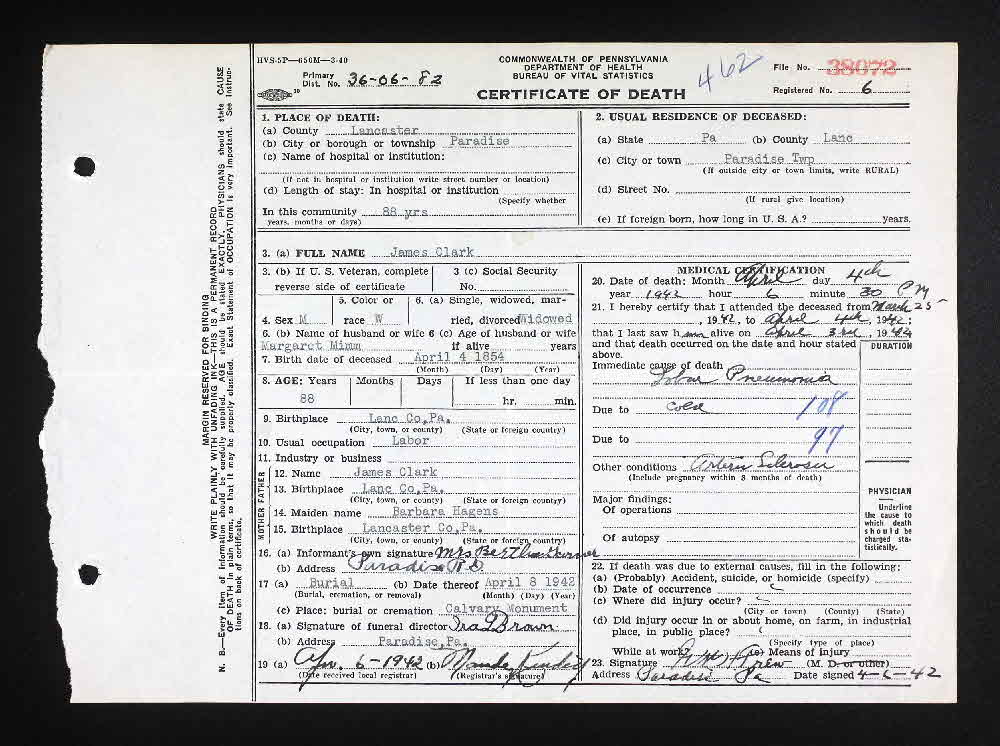 HVS-5P—650M—3-40
Primary Dist. No. 36-06-82
COMMONWEALTH OF PENNSYLVANIA
DEPARTMENT OF HEALTH
BUREAU OF VITAL STATISTICS
CERTIFICATE OF DEATH
462
File No. 38072
Registered No. 6
MARGIN RESERVED FOR BINDING
WRITE PLAINLY WITH UNFADING INK—THIS IS A PERMANENT RECORD
N. B.—Every item of information should be carefully supplied. AGE should be stated EXACTLY. PHYSICIANS should state CAUSE
OF DEATH in plain terms, so that it may be properly classified. Exact Statement of OCCUPATION is very important. See Instruc-
tions on back of certificate.
1. PLACE OF DEATH:
(a) County Lancaster
(b) City or borough or township Paradise
(c) Name of hospital or institution:
(If not in hospital or institution write street number or location)
(d) Length of stay: In hospital or institution
(Specify whether
In this community 88 yrs
years, months or days)
2. USUAL RESIDENCE OF DECEASED:
(a) State Pa (b) County Lanc
(c) City or town Paradise Twp
(If outside city or town limits, write RURAL)
(d) Street No.
(If rural give location)
(e) If foreign born, how long in U. S. A.? years.
3. (a) FULL NAME James Clark
3. (b) If U. S. Veteran, complete reverse side of certificate
3 (c) Social Security No.
4. Sex M
5. Color or race W
6. (a) Single, widowed, married, divorced Widowed
6. (b) Name of husband or wife Margaret Mimm
6 (c) Age of husband or wife if alive years
7. Birth date of deceased April 4 1854
(Month) (Day) (Year)
8. AGE: Years Months Days If less than one day
88 hr. min.
9. Birthplace Lanc Co, Pa.
(City, town, or county) (State or foreign country)
10. Usual occupation Labor
11. Industry or business
FATHER
12. Name James Clark
13. Birthplace Lanc Co, Pa.
(City, town, or county) (State or foreign country)
MOTHER
14. Maiden name Barbara Hagens
15. Birthplace Lancaster Co, Pa.
(City, town, or county) (State or foreign country)
16. (a) Informant's own signature Mrs Bertha
(b) Address Paradise R D
17 (a) Burial (b) Date thereof April 8 1942
(Burial, cremation, or removal) (Month) (Day) (Year)
(c) Place: burial or cremation Calvary Monument
18. (a) Signature of funeral director Ira L Brown
(b) Address Paradise, Pa.
19 (a) Apr. 6-1942 (b)
(Date received local registrar) (Registrar's signature)
MEDICAL CERTIFICATION
20. Date of death: Month April day 4th
year 1942 hour 6 minute 30 P M
21. I hereby certify that I attended the deceased from March 25
, 1942, to April 4th, 1942;
that I last saw him alive on April 3rd, 1942
and that death occurred on the date and hour stated above.
DURATION
Immediate cause of death Lobar Pneumonia
Due to Cold 108
Due to 97
Other conditions Arterio Sclerosis
(Include pregnancy within 3 months of death)
Major findings:
Of operations
Of autopsy
PHYSICIAN
Underline
the cause to
which death
should be
charged sta-
tistically.
22. If death was due to external causes, fill in the following:
(a) (Probably) Accident, suicide, or homicide (specify)
(b) Date of occurrence
(c) Where did injury occur?
(City or town) (County) (State)
(d) Did injury occur in or about home, on farm, in industrial
place, in public place?
(Specify type of place)
While at work? (e) Means of injury
23. Signature (M. D. or other)
Address Paradise Pa Date signed 4-6-42